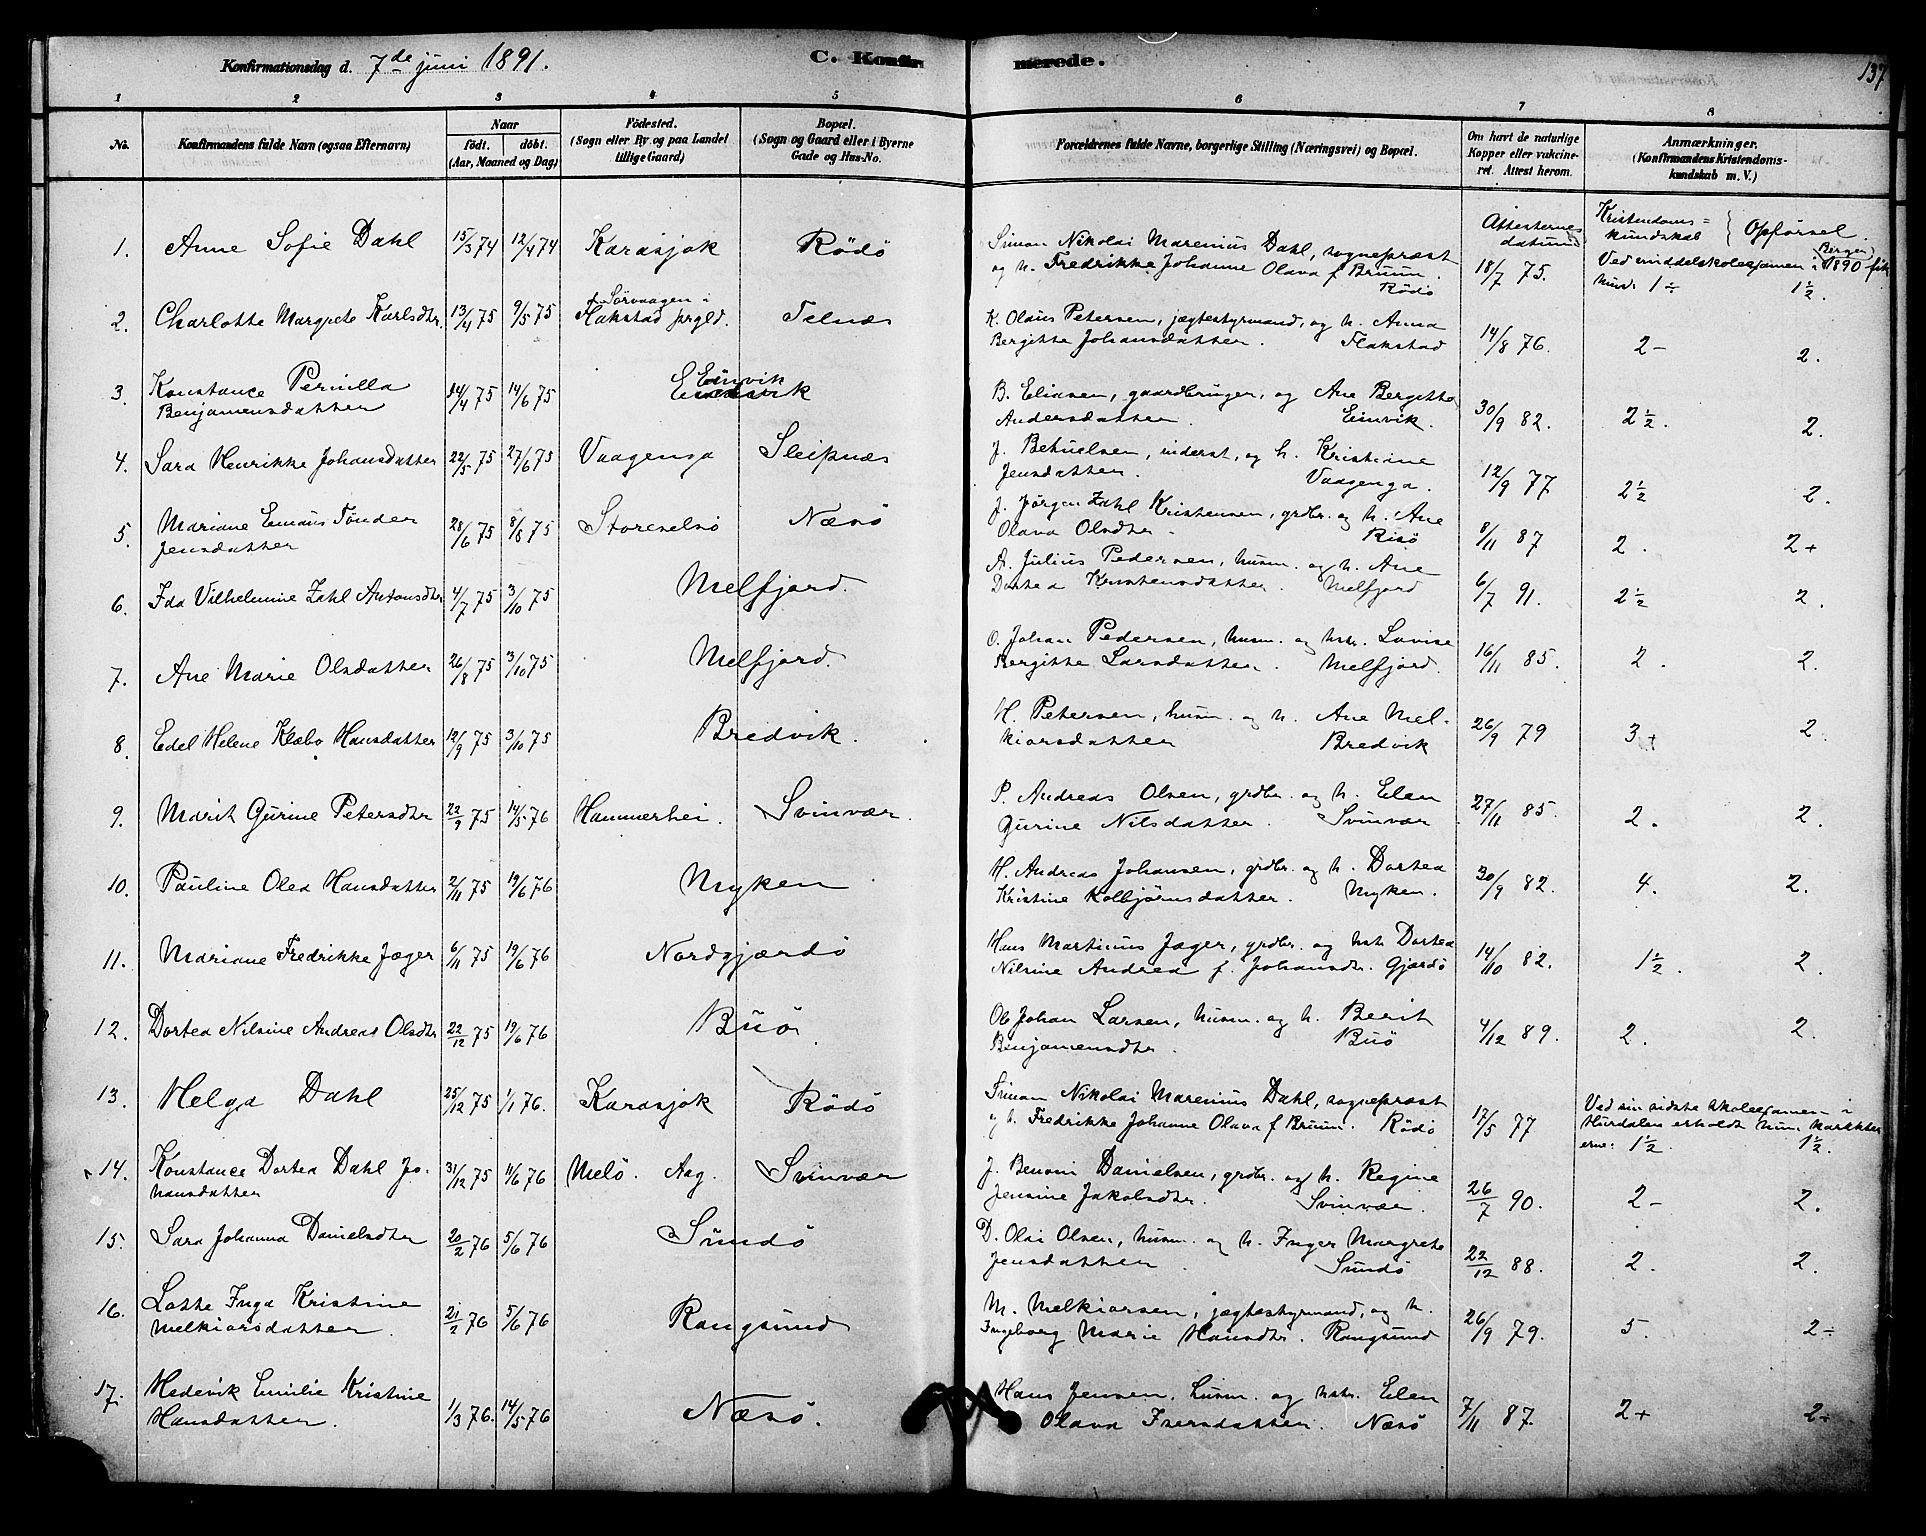 Konfirmationsdag d. 7de juni 1891. C. Konfirmerede. 137
1 2 3 4 5 6 7 8
No. Konfirmandens fulde Navn (ogsaa Efternavn) Naar födt. döbt. (Aar, Maaned og Dag) Födested. (Sogn eller By og paa Landet tillige Gaard) Bopæl. (Sogn og Gaard eller i Byerne Gade og Hus-No. Forældrenes fulde Navne, borgerlige Stilling (Næringsvei) og Bopæl. Om havt de naturlige Kopper eller vakcineret. Attest herom. Anmærkninger. (Konfirmandens Kristendomskundskab m. V.)
Attesternes datum Kristendomskundskab { Opførsel.
1. Anne Sofie Dahl 15/3 74 12/4 74 Karasjok Rödö Simon Nikolai Marenius Dahl, sognepræst
og h. Fredrikke Johanne Olava f Bruun. Rödö 18/7 75. Ved middelskoleexamen i Bergen 1890 fik
hun: 1÷ 1½.
2. Charlotte Margrete Karlsdtr. 13/4 75 9/5 75 Sørvaagen i
Flakstad prgld. Telnes K. Olaus Petersen, jægtestyrmand, og h. Anna
Bergitte Johansdatter. Flakstad 14/8 76. 2- 2.
3. Konstance Pernilla
Benjamensdatter 14/4 75 14/6 75 Einvik
B. Eliasen, gaardbruger, og Ane Bergitte
Andersdatter. Einvik. 30/9 82. 2½. 2.
4. Sara Henrikke Johansdatter 22/5 75 27/6 75 Vaagenga Sleipnes J. Behuelsen, inderst, og h. Kristiane
Jensdatter. Vaagenga. 12/9 77 2½ 2.
5. Mariane Emaus Tönder
Jensdatter 28/6 75 8/8 75 Storeselsö Næsö J. Jörgen Zahl Kristensen, grdbr. og h. Ane
Olava Olsdtr. Risö 8/11 87 2. 2+
6. Ida Vilhelmine Zahl Antonsdtr 4/7 75 3/10 75 Melfjord. A. Julius Pedersen, husm. og h. Ane
Dortea Kristensdatter. Melfjord 6/7 91. 2½ 2.
7. Ane Marie Olsdatter 26/8 75 3/10 75 Melfjord. O. Johan Pedersen, husm. og hstr. Lovise
Bergitte Larsdatter. Melfjord. 16/11 85. 2. 2.
8. Edel Helene Klæbo Hansdatter 12/9 75 3/10 75 Bredvik. H. Petersen, husm. og h. Ane Mel-
kiorsdatter Bredvik 26/9 79 3+ 2.
9. Marit Gurine Petersdtr 22/9 75 14/5 76 Hammerhei. Svinvær. P. Andreas Olsen, grdbr. og h. Elen
Gurine Nilsdatter. Svinvær 27/11 85. 2. 2.
10. Pauline Olea Hansdatter 2/11 75 19/6 76 Myken H. Andreas Johansen, grdbr. og h. Dortea
Kristine Kolbjörnsdatter. Myken. 30/9 82. 4. 2.
11. Mariane Fredrikke Jæger 6/11 75 19/6 76 Nordgjærdö Hans Martinus Jæger, grdbr. og hstr. Dortea
Nilsine Andrea f. Johansdtr. Gjærdö 14/10 82. 1½. 2.
12. Dortea Nilsine Andreas Olsdtr 22/12 75 19/6 76 Buö. Ole Johan Larsen, husm. og h. Berit
Benjamensdtr. Buö 4/12 89. 2. 2.
13. Helga Dahl 25/12 75 1/1 76. Karasjok Rödö Simon Nikolai Marenius Dahl, sognepræst
og h. Fredrikke Johanne Olava f Bruun. Rödö 17/5 77 Ved sin sidste skoleexamen i
Hurdalen erholdt hun karakter
erne: 1½. 1½.
14. Konstance Dortea Dahl Jo-
hansdatter 31/12 75 11/6 76 Melö. Aag. Svinvær J. Benoni Danielsen, grdbr. og h. Regine
Jensine Jakobsdtr. Svinvær. 26/7 90. 2- 2.
15. Sara Johanna Danielsdtr 20/2 76 5/6 76 Sundö D. Olai Olsen, husm. og h. Inger Margrete
Jensdatter. Sundö 22/12 88. 2. 2.
16. Lotte Inga Kristine
Melkiorsdatter. 21/2 76 5/6 76 Rangsund M. Melkiorsen, jægtestyrmand, og h.
Ingeborg Marie Hansdtr. Rangsund 26/9 79. 5. 2÷
17. Hedevik Emilie Kristine
Hansdatter. 1/3 76. 14/5 76 Næsö. Hans Jensen, husm. og hstr. Elen
Olava Iversdatter. Næsö 7/11 87. 2+ 2÷